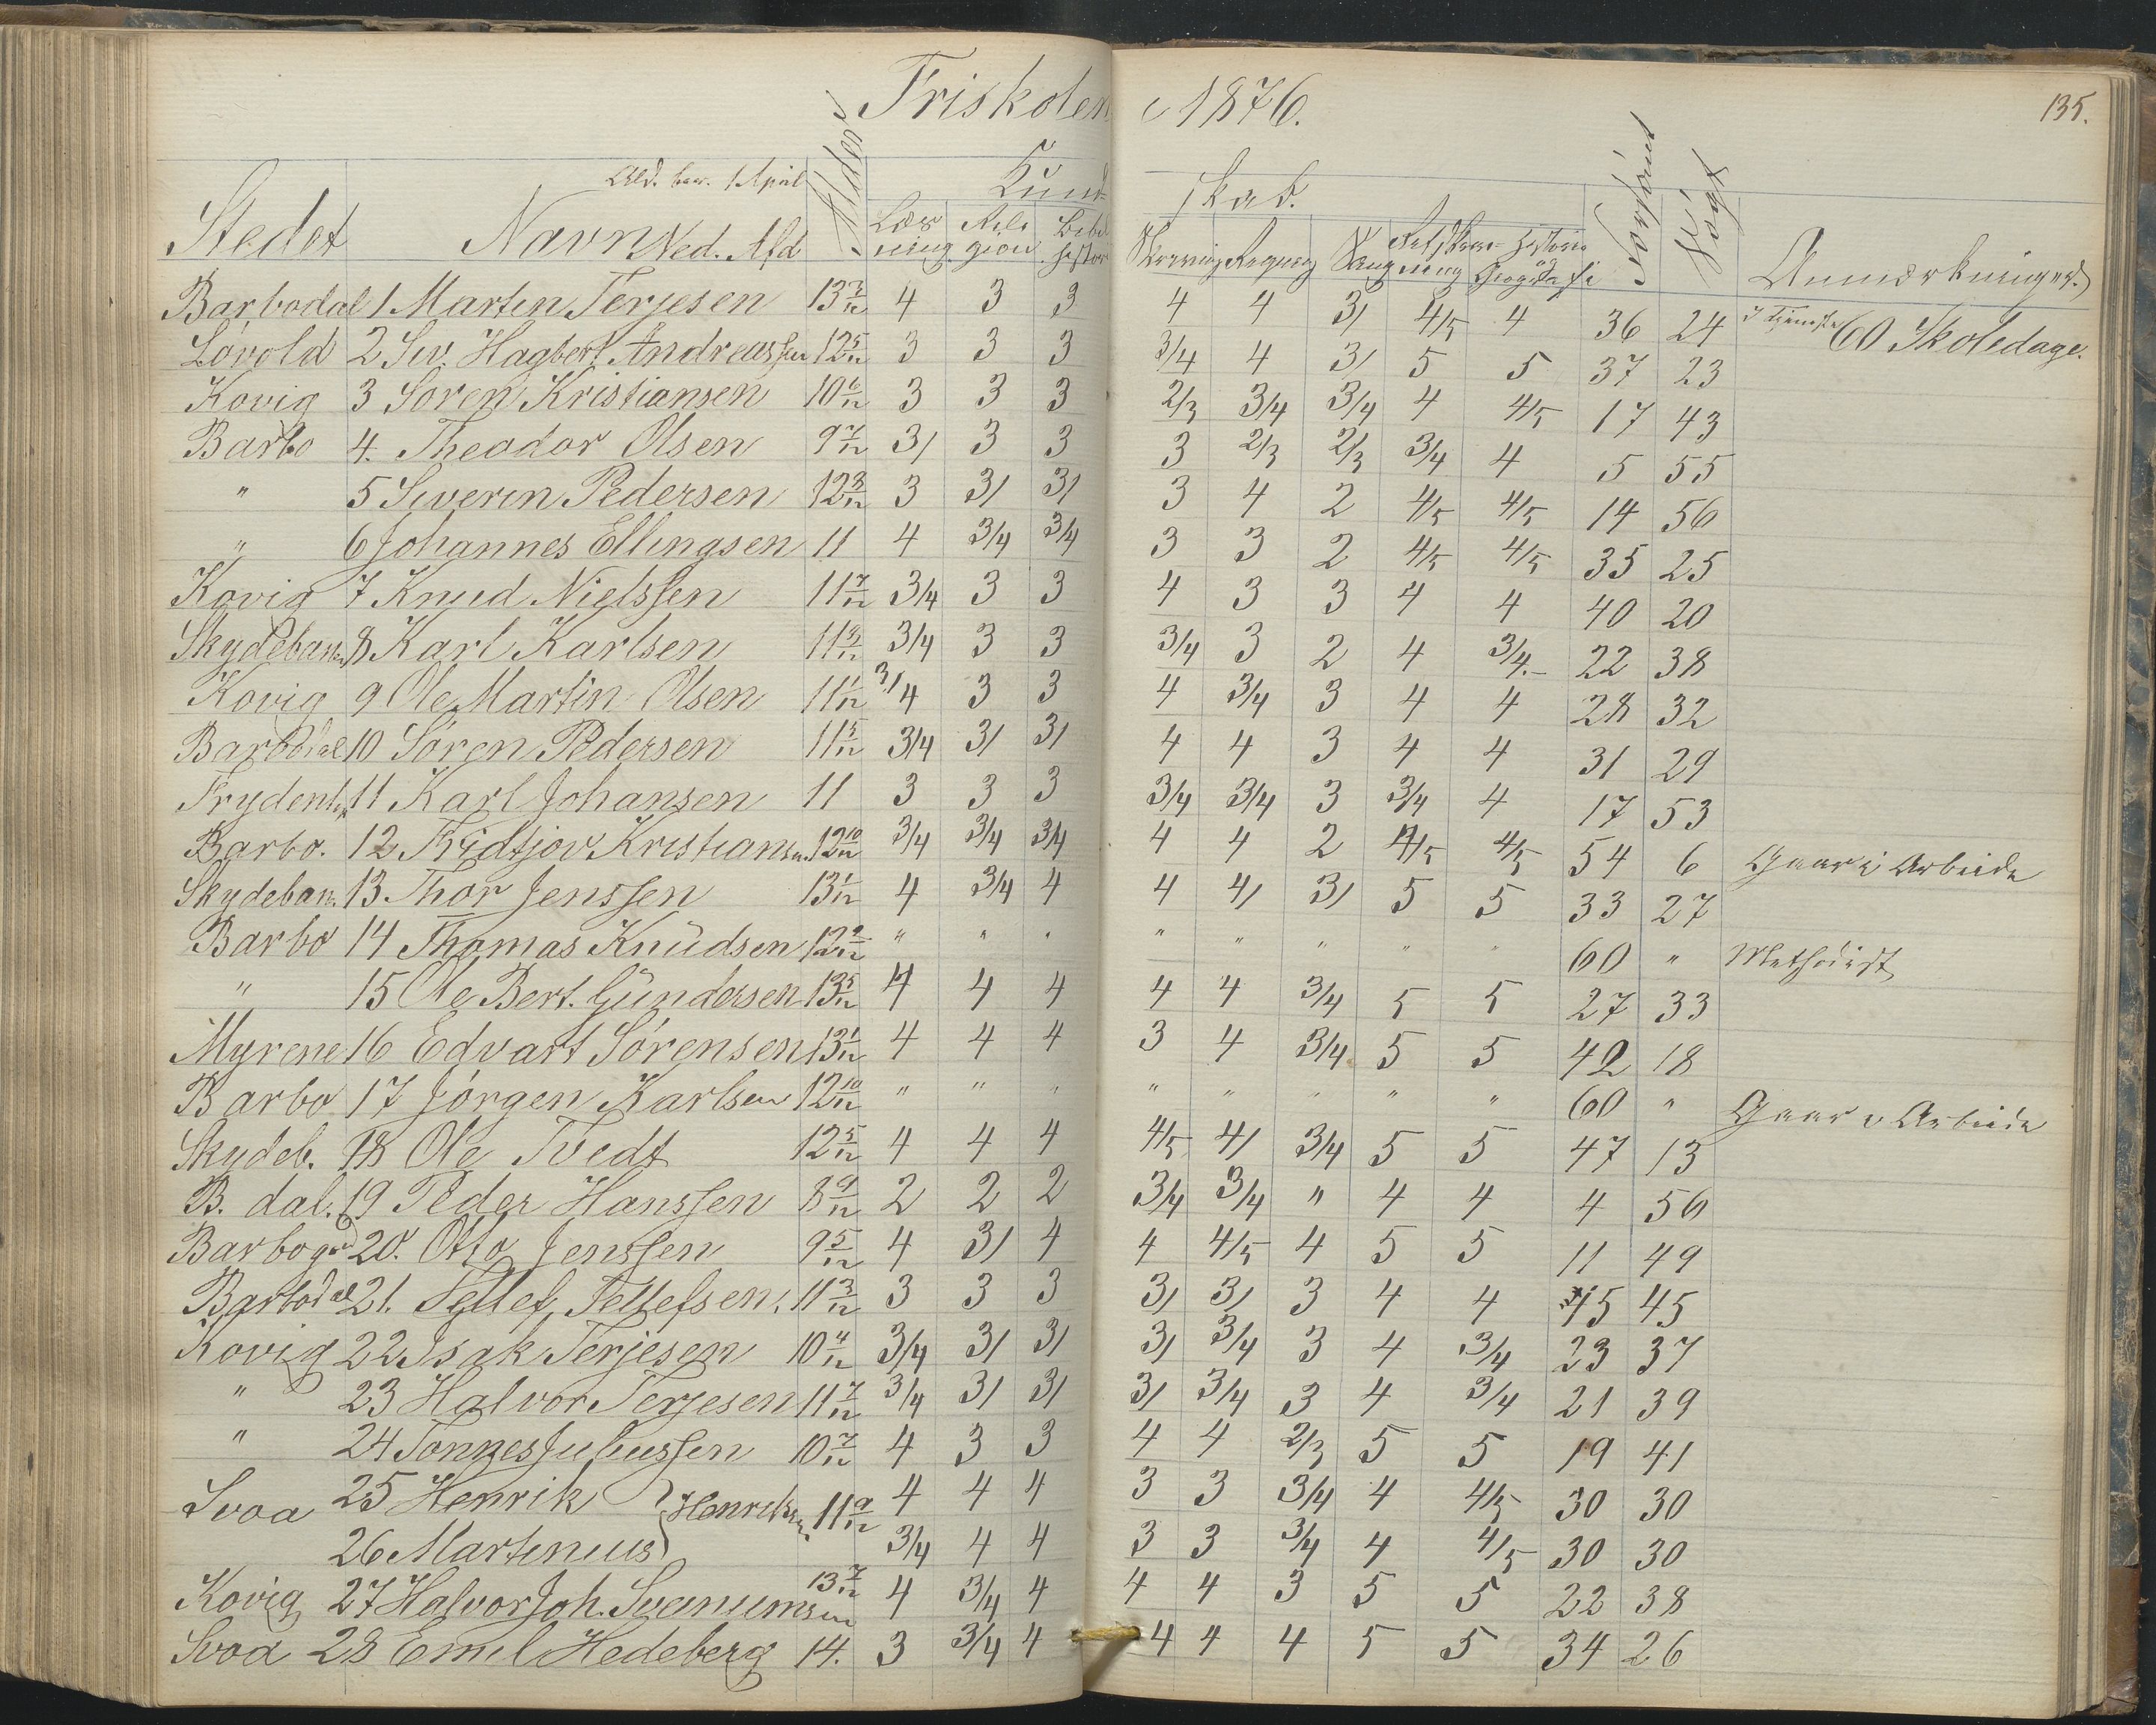 Friskolen i 1876.
135.
Ald. ber. 1 April
Kund- skab.
Stedet Navn Ned. Afd Alder Læsning Religion Bibelhistori Skrivning Regning Sang Retskrivning Historie og Geografi Forsømt Søgt Anmærkninger.
Barbodal 1 Martin Terjesen 13 3/12 4 3 3 4 4 3/ 4/5 4 36 24 I Tjeneste 60 Skoledage.
Lövold 2 Siv. Hagbert Andreassen 12 5/12 3 3 3 3/4 4 3/ 5 5 37 23
Kovig 3 Sören Kristiansen 10 6/12 3 3 3 2/3 3/4 3/4 4 4/5 17 43
Barbo 4. Theodor Olsen 9 7/12 3/ 3 3 3 2/3 2/3 3/4 4 5 55
" 5 Siverin Pedersen 12 8/12 3 3/ 3/ 3 4 2 4/5 4/5 14 56
" 6 Johannes Ellingsen 11 4 3/4 3/4 3 3 2 4/5 4/5 35 25
Kovig 7 Knud Nielssen 11 7/12 3/4 3 3 4 3 3 4 4 40 20
Skydebanen 8 Karl Karlsen 11 9/12 3/4 3 3 3/4 3 2 4 3/4.- 22 38
Kovig 9 Ole Martin Olsen 11 1/12 3/4 3 3 4 3/4 3 4 4 28 32
Barbodal 10 Sören Pedersen 11 5/12 3/4 3/ 3/ 4 4 3 4 4 31 29
Frydenb. 11 Karl Johansen 11 3 3 3 3/4 3/4 3 3/4 4 17 53
Barbo. 12 Fridtjov Kristiansen 12 10/12 3/4 3/4 3/4 4 4 2 4/5 4/5 54 6 Gaar i Arbeide
Skydeban. 13 Thor Jenssen 13 1/12 4 3/4 4 4 4/ 3/ 5 5 33 27
Barbo 14 Thomas Knudsen 12 9/12 " " " " " " " " 60 " Methodist
" 15 Ole Bert. Gundersen 13 5/12 4 4 4 4 4 3/4 5 5 27 33
Myrene 16 Edvart Sörensen 13 1/12 4 4 4 3 4 3/4 5 5 42 18
Barbo 17 Jörgen Karlsen 12 10/12 " " " " " " " " 60 " Gaar i Arbeide
Skydeb. 18 Ole Tvedt 12 5/12 4 4 4 4/5 4/ 3/4 5 5 47 13
B. dal. 19 Peder Hanssen 8 9/12 2 2 2 3/4 3/4 " 4 4 4 56
Barbogrd 20. Otto Jenssen 9 5/12 4 3/ 4 4 4/5 4 5 5 11 49
Barbodal 21. Tellef Tellefsen. 11 3/12 3 3 3 3/ 3/ 3 4 4 15 45
Kovig 22 Isak Terjesen 10 4/12 3/4 3/ 3/ 3/ 3/4 3 4 3/4 23 37
" 23 Halvor Terjesen 11 7/12 3/4 3/ 3/ 3/ 3/4 3 4 3/4 21 39
" 24 Tönnes Juliussen 10 7/12 4 3 3 4 4 2/3 5 5 19 41
Svoa 25 Henrik } Henriksen. 11 9/12 4 4 4 3 3 3/4 4 4/5 30 30
26 Martinius 3/4 4 4 3 3 3/4 4 4/5 30 30
Kovig 27 Halvor Joh. Svenumsen 13 7/12 4 3/4 4 4 4 3 5 5 22 38
Svoa 28 Emil Hedeberg 14. 3 3/4 4 4 4 4 5 5 34 26